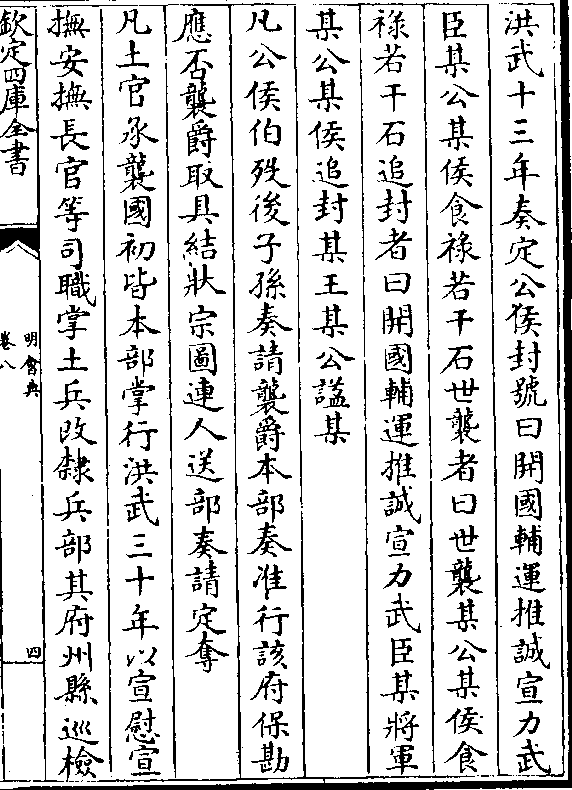 洪武十三年奏定公侯封號曰開國輔運推誠宣力武
臣某公某侯食祿若干石世襲者曰世襲某公某侯食
祿若干石追封者曰開國輔運推誠宣力武臣某將軍
某公某侯追封某王某公謚某
凡公侯伯殁後子孫奏請襲爵本部奏准行該府保勘
應否襲爵取具結狀宗圖連人送部奏請定奪
凡土官承襲國初皆本部掌行洪武三十年以宣慰宣
撫安撫長官等司職掌土兵改隸兵部其府州縣巡檢
欽定四庫全書
明會典
卷八
四